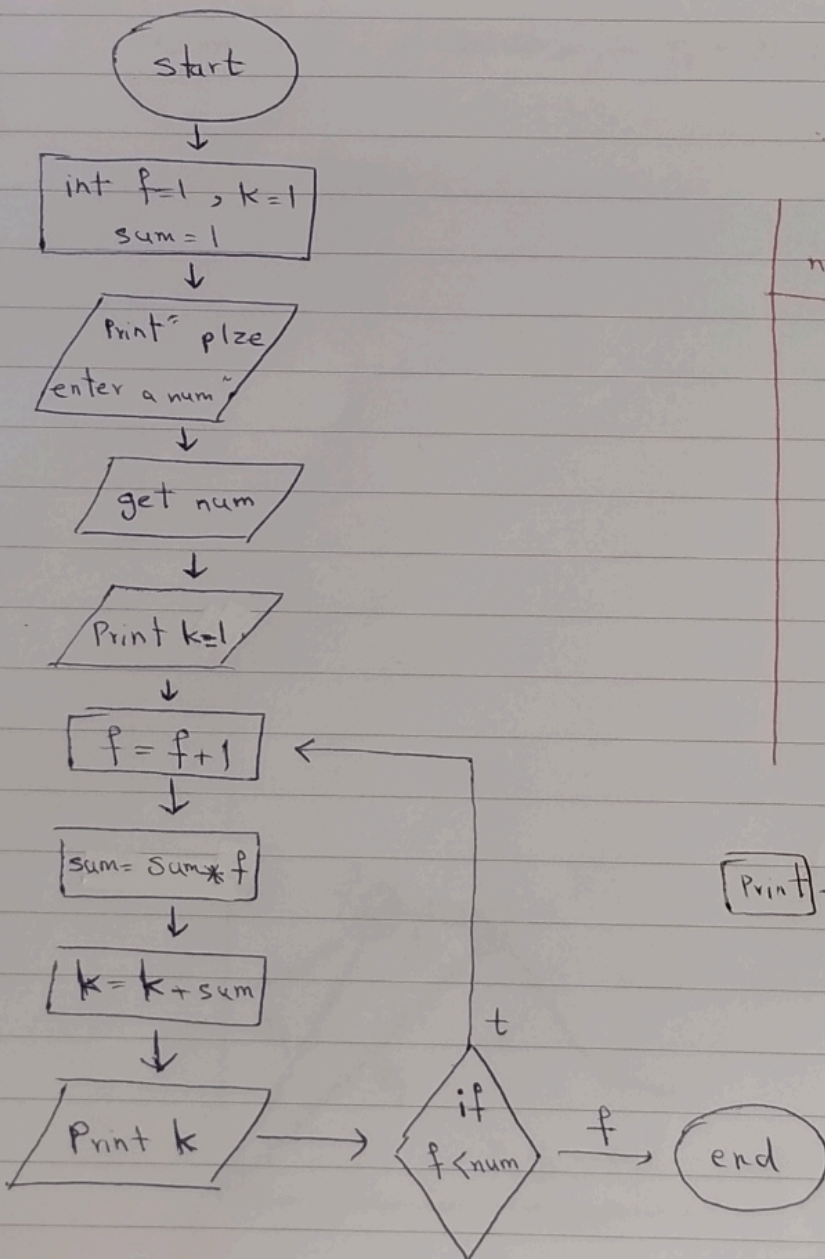 start
int f=1 , k=1
sum = 1
Print" plze
enter a num"
get num
Print k=1
f = f+1
sum= sum* f
k= k+sum
Print k
if
f<num
t
f
end
n
Print